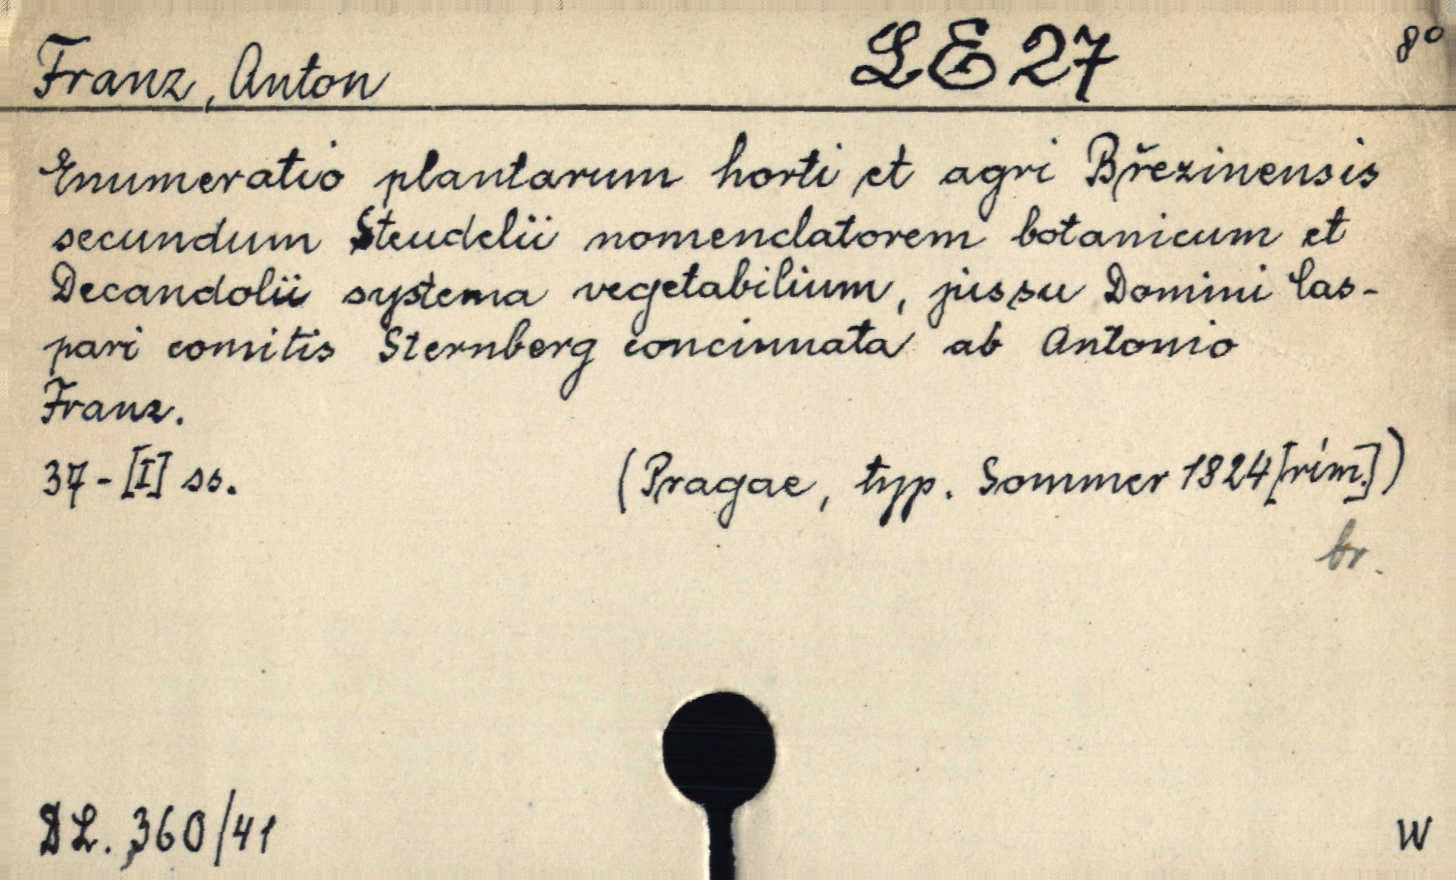 Franz, Anton LE 27 8°
Enumeratio plantarum horti et agri Březinensis
secundum Steudelii nomenclatorem botanicum et
Decandolii systema vegetabilium, jussu Domini Cas-
pari comitis Sternberg concinnata ab Antonio
Franz.
37-[I] ss. (Pragae, typ. Sommer 1824[řím.])
br.
DL. 360/41 W